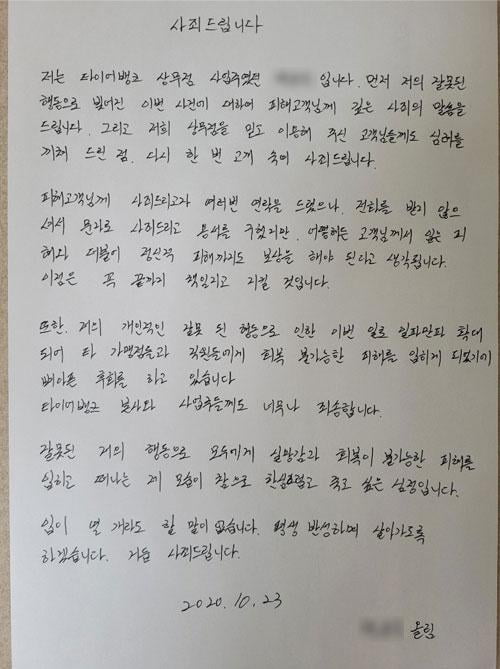 사죄드립니다
저는 타이어뱅크 상무점 사업주였던 입니다. 먼저 저의 잘못된
행동으로 빚어진 이번 사건에 대하여 피해고객님께 깊은 사죄의 말씀을
드립니다. 그리고 저희 상무점을 믿고 이용해 주신 고객님들께도 심려를
끼쳐 드린 점. 다시 한 번 고개 숙여 사죄드립니다.
피해고객님께 사죄드리고자 여러번 연락을 드렸으나. 전화를 받지 않으
셔서 문자로 사죄드리고 용서를 구했지만. 어떻하든 고객님께서 입은 피
해와 더불어 정신적 피해까지도 보상을 해야 된다고 생각됩니다.
이점은 꼭 끝까지 책임지고 지킬 것입니다.
또한. 저의 개인적인 잘못 된 행동으로 인한 이번 일로 일파만파 확대
되어 타 가맹점들과 직원들에게 회복 불가능한 피해를 입히게 되었기에
뼈아픈 후회를 하고 있습니다
타이어뱅크 본사와 사업주들께도 너무나 죄송합니다.
잘못된 저의 행동으로 모두에게 실망감과 회복이 불가능한 피해를
입히고 떠나는 제 모습이 참으로 한심스럽고 죽고 싶은 심정입니다.
입이 열 개라도 할 말이 없습니다. 평생 반성하며 살아가도록
하겠습니다. 거듭 사죄드립니다.
2020.10.23
올림